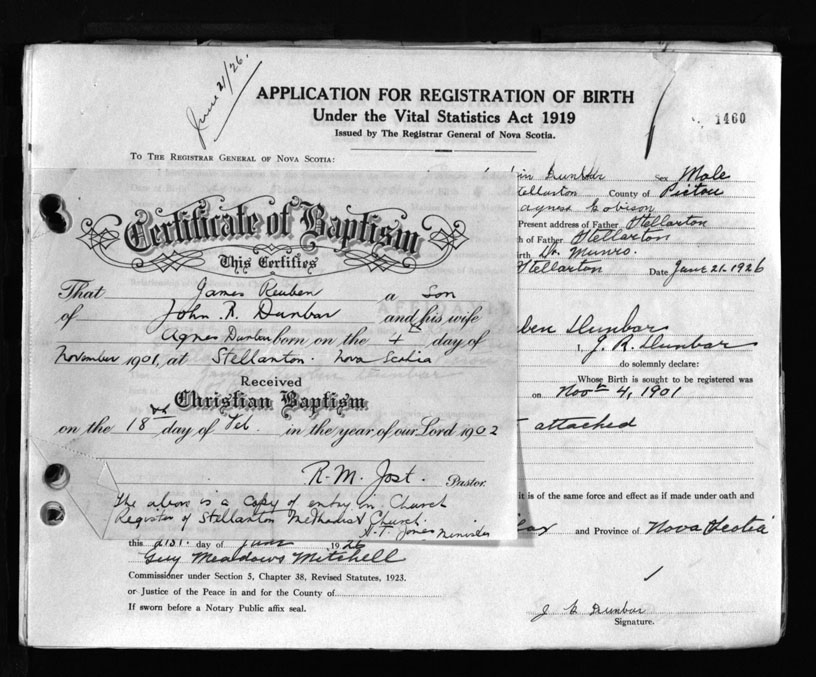 June 21/26.
APPLICATION FOR REGISTRATION OF BIRTH
Under the Vital Statistics Act 1919
Issued by The Registrar General of Nova Scotia.
1460
TO THE REGISTRAR GENERAL OF NOVA SCOTIA:
Dunbar Sex Male
County of Pictou
Present address of Father Stellarton
of Father Stellarton
Dr. Munro.
Stellarton Date June 21-1926
Dunbar
I, J. R. Dunbar
do solemnly declare:
Whose Birth is sought to be registered was
on Nov 4, 1901
attached
it is of the same force and effect as if made under oath and
and Province of Nova Scotia
Certificate of Baptism
This Certifies
That James Reuben a Son
of John R. Dunbar and his wife
Agnes Dunbar born on the 4th day of
November 1901, at Stellarton. Nova Scotia
Received
Christian Baptism
on the 18th day of Feb. in the year of our Lord 1902
R. M. Jost. Pastor.
The above is a copy of entry in Church
Register of Stellarton Methodist Church.
Minister
this 21st. day of June 1926
Guy Meadows Mitchell
Commissioner under Section 5, Chapter 38, Revised Statutes, 1923.
or Justice of the Peace in and for the County of
If sworn before a Notary Public affix seal.
Dunbar
Signature.